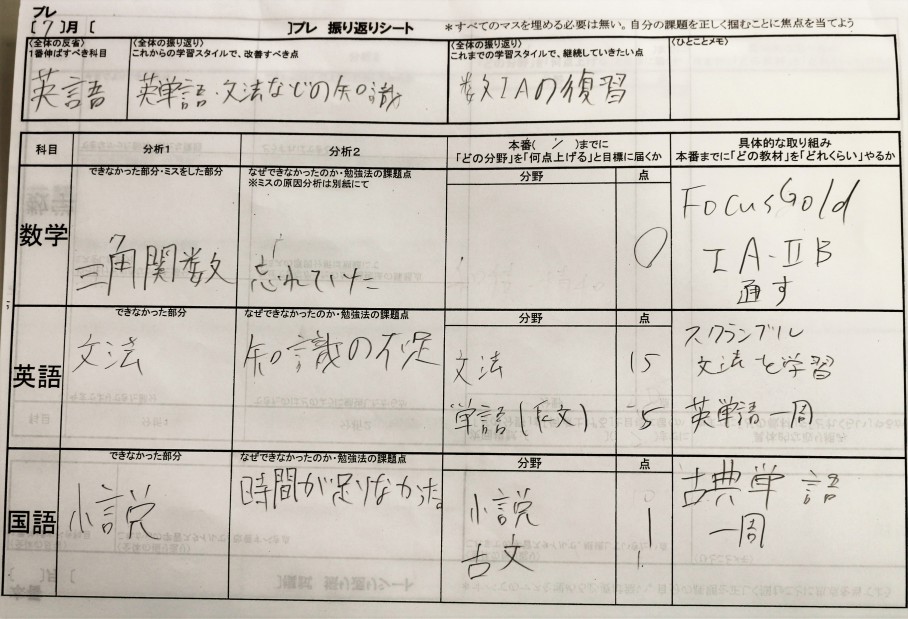 プレ
[ 7 ]月 [ ]プレ 振り返りシート *すべてのマスを埋める必要は無い。自分の課題を正しく掴むことに焦点を当てよう
〈全体の反省〉
1番伸ばすべき科目
英語
〈全体の振り返り〉
これからの学習スタイルで、改善すべき点
英単語・文法などの知識
〈全体の振り返り〉
これまでの学習スタイルで、継続していきたい点
数IAの復習
〈ひとことメモ〉
科目 分析1 分析2 本番( / )までに 具体的な取り組み
「どの分野」を「何点上げる」と目標に届くか 本番までに「どの教材」を「どれくらい」やるか
数学
できなかった部分・ミスをした部分
三角関数
なぜできなかったのか・勉強法の課題点
※ミスの原因分析は別紙にて
忘れていた
分野 点
0
FocusGold
IA-IIB
通す
英語
できなかった部分
文法
なぜできなかったのか・勉強法の課題点
知識の不足
分野 点
文法 15
単語(長文) 5
スクランブル
文法を学習
英単語一周
国語
できなかった部分
小説
なぜできなかったのか・勉強法の課題点
時間が足りなかった。
分野 点
小説 1
古文
古典単語
一周